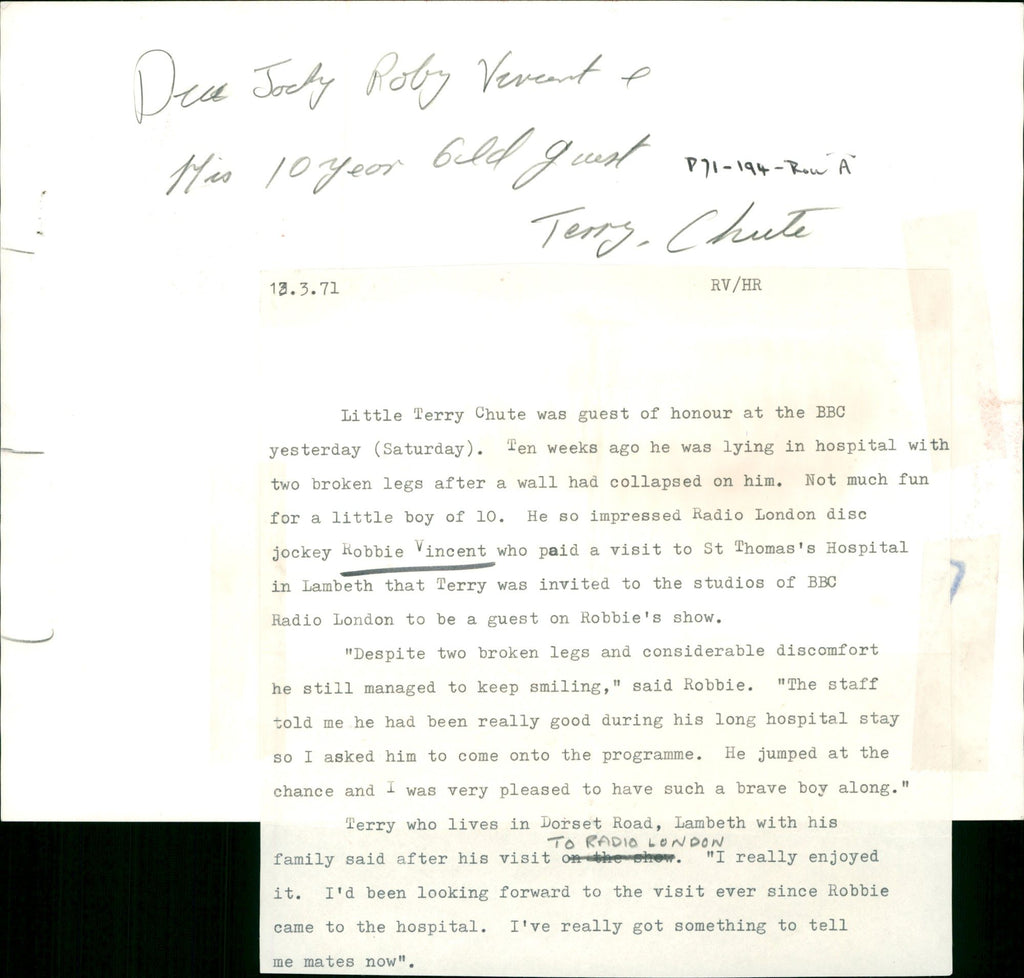 Disc Jocky Roby Vincent &
His 10 year Old guest
P71-194-Row "A"
Terry. Chute
13.3.71 RV/HR
Little Terry Chute was guest of honour at the BBC
yesterday (Saturday). Ten weeks ago he was lying in hospital with
two broken legs after a wall had collapsed on him. Not much fun
for a little boy of 10. He so impressed Radio London disc
jockey Robbie Vincent who paid a visit to St Thomas's Hospital
in Lambeth that Terry was invited to the studios of BBC
Radio London to be a guest on Robbie's show.
"Despite two broken legs and considerable discomfort
he still managed to keep smiling," said Robbie. "The staff
told me he had been really good during his long hospital stay
so I asked him to come onto the programme. He jumped at the
chance and I was very pleased to have such a brave boy along."
Terry who lives in Dorset Road, Lambeth with his
TO RADIO LONDON
family said after his visit on the show. "I really enjoyed
it. I'd been looking forward to the visit ever since Robbie
came to the hospital. I've really got something to tell
me mates now".